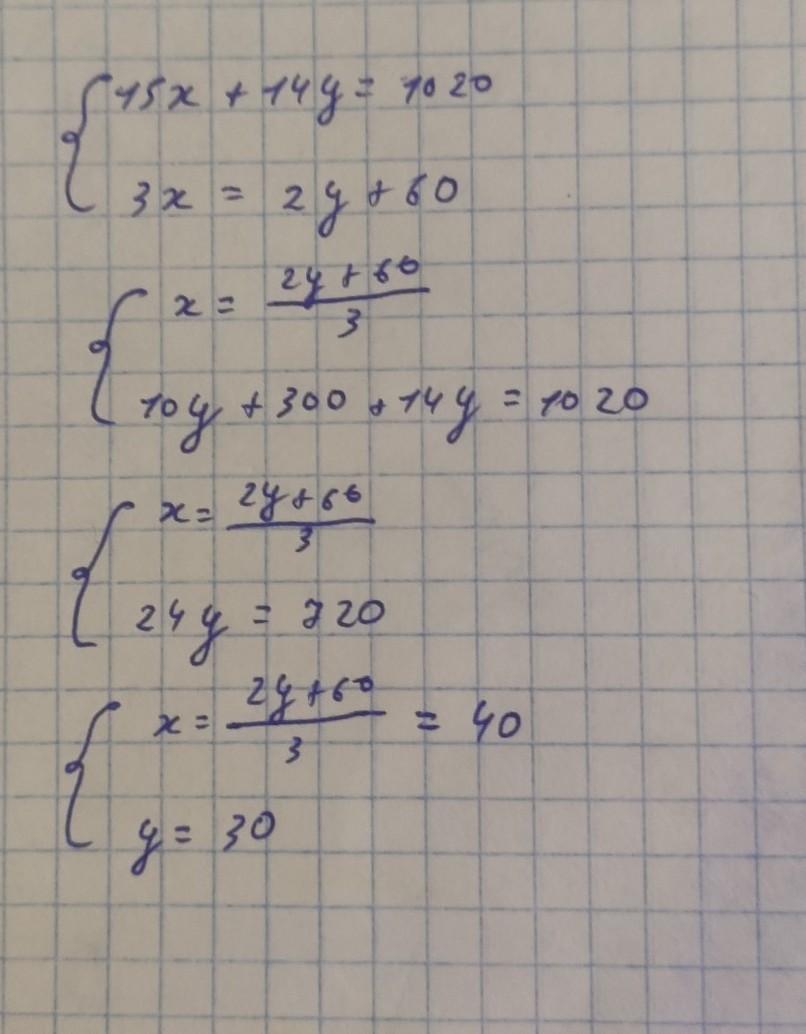 15x + 14y = 1020
3x = 2y + 60
x = \frac{2y + 60}{3}
10y + 300 + 14y = 1020
x = \frac{2y + 60}{3}
24y = 720
x = \frac{2y + 60}{3} = 40
y = 30